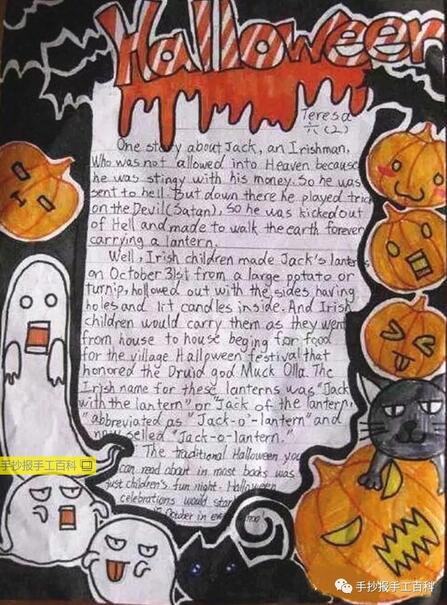 Halloween
Teresa
六(2)
One story about Jack, an Irishman,
who was not allowed into Heaven because
he was stingy with his money. So he was
sent to hell. But down there he played trick
on the Devil (Satan), so he was kicked out
of Hell and made to walk the earth forever
carrying a lantern.
Well, Irish children made Jack's lanterns
on October 31st from a large potato or
turnip, hollowed out with the sides having
holes and lit candles inside. And Irish
children would carry them as they went
from house to house begging for food
for the village Halloween festival that
honored the Druid god Muck Olla. The
Irish name for these lanterns was "Jack
with the lantern" or "Jack of the lantern,
"abbreviated as "Jack-o'-lantern" and
now selled "Jack-o-lantern."
The traditional Halloween you
can read about in most books was
just children's fun night. Halloween
celebrations would start
October in
手抄报手工百科
手抄报手工百科